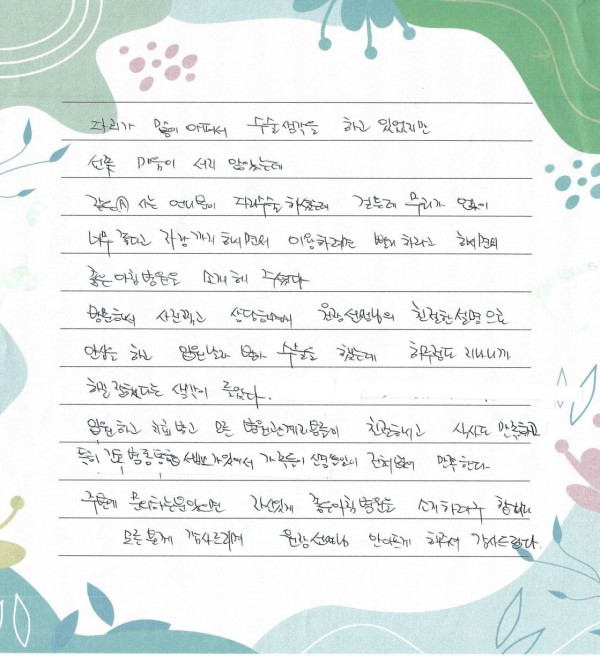 다리가 많이 아파서 수술생각을 하고 있었지만
선뜻 마음이 서지 않았는데
같은 Ⓐ 사는 언니분이 다리수술 하셨는데 걷는데 무리가 없이
너무 좋다고 자랑까지 하시면서 이왕하려면 빨리 하라고 하시면서
좋은아침병원으로 소개해 주셨다
방문해서 사진찍고 상담하면서 원장선생님의 친절한 설명으로
안심을 하고 입원날과 수술을 했는데 하루정도 지나니까
잘했다는 생각이 들었다.
입원하고 치료받고 모든 병원관계자분들이 친절하시고 식사도 만족하고
특히 간호 병동 가있어서 가족들이 신경쓸일이 만족한다.
주변에 문의하는분있으면 자신있게 좋은아침병원으로 소개하려구 합니다
모든분께 감사드리며 원장선생님 안아프게 해주셔 감사드린다.